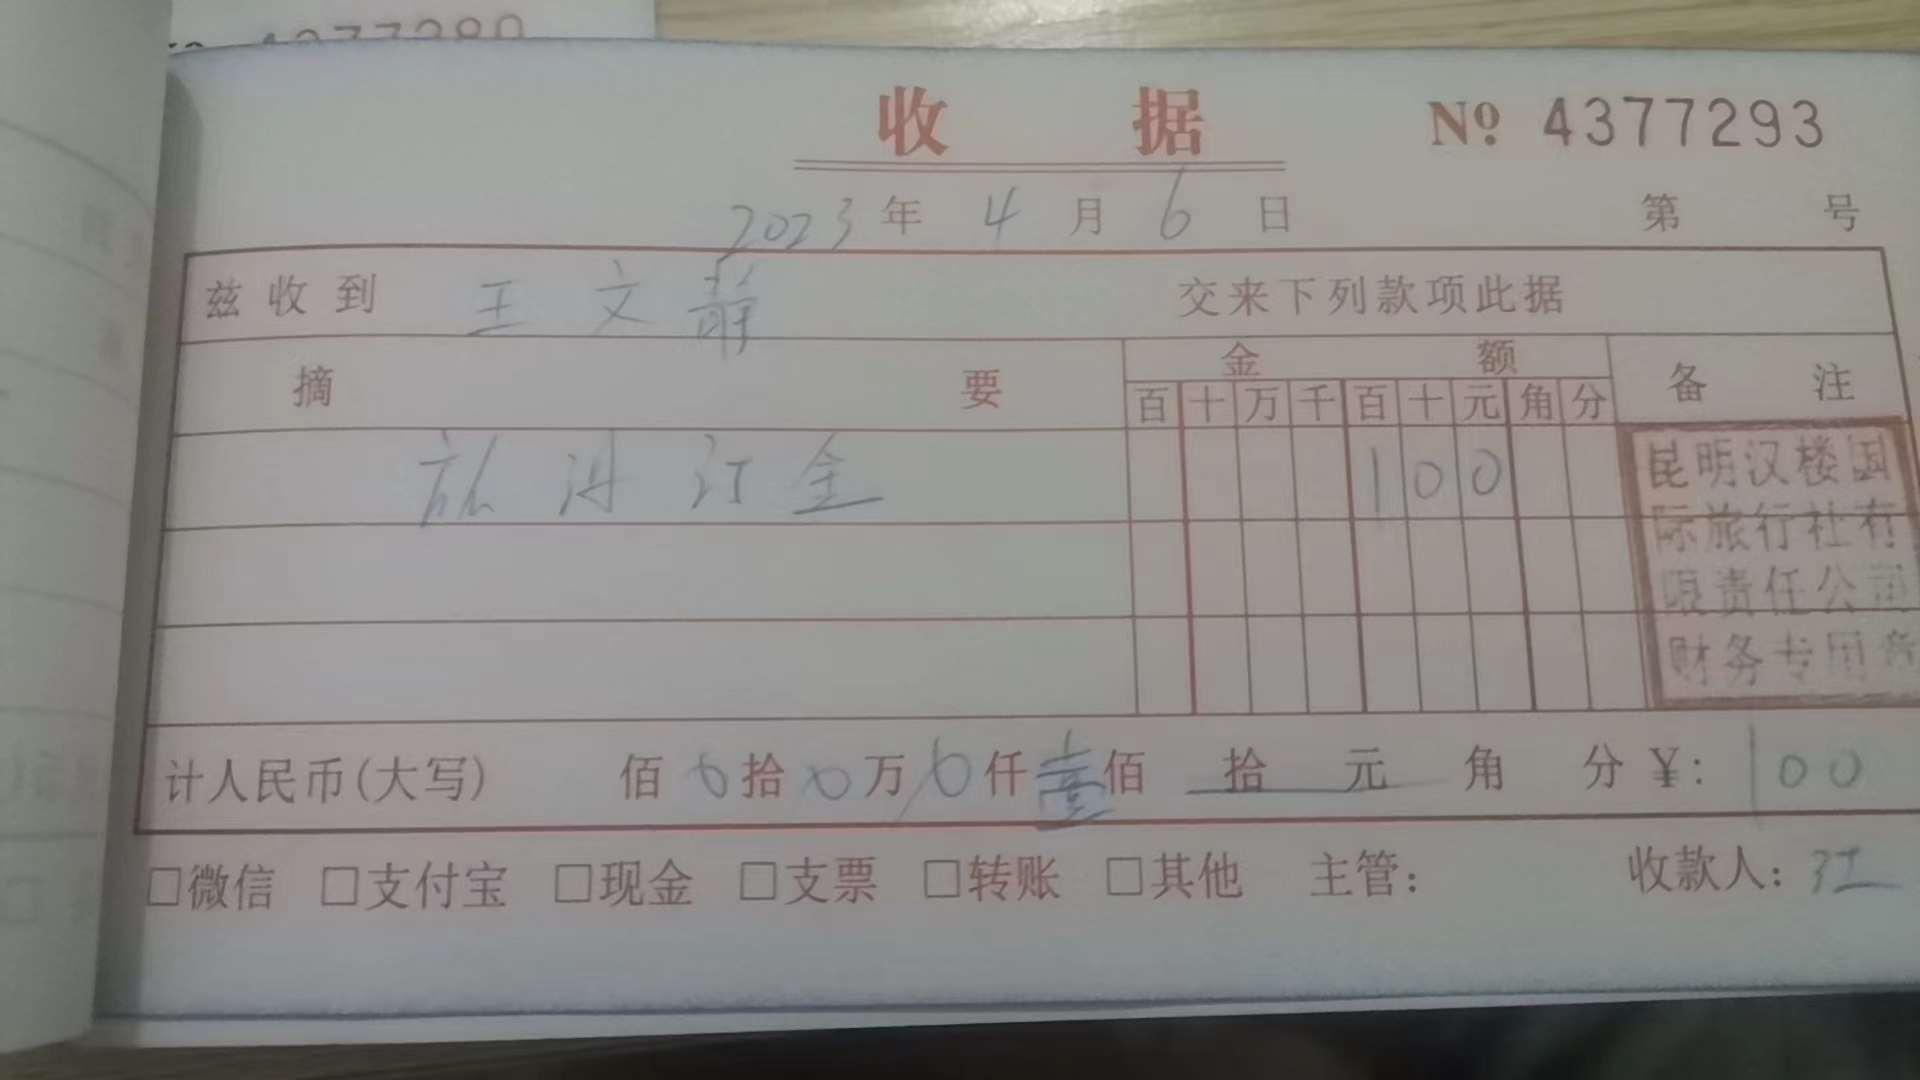 收 据 Nº 4377293
2023 年 4 月 6 日 第 号
兹收到 王文静 交来下列款项此据
摘 要 金 额 备 注
百 十 万 千 百 十 元 角 分
订金 1 0 0
昆明汉楼国
际旅行社有
限责任公司
财务专用章
计人民币(大写) 佰 0 拾 0 万 0 仟 壹 佰 拾 元 角 分 ¥: 100
□微信 □支付宝 □现金 □支票 □转账 □其他 主管: 收款人: